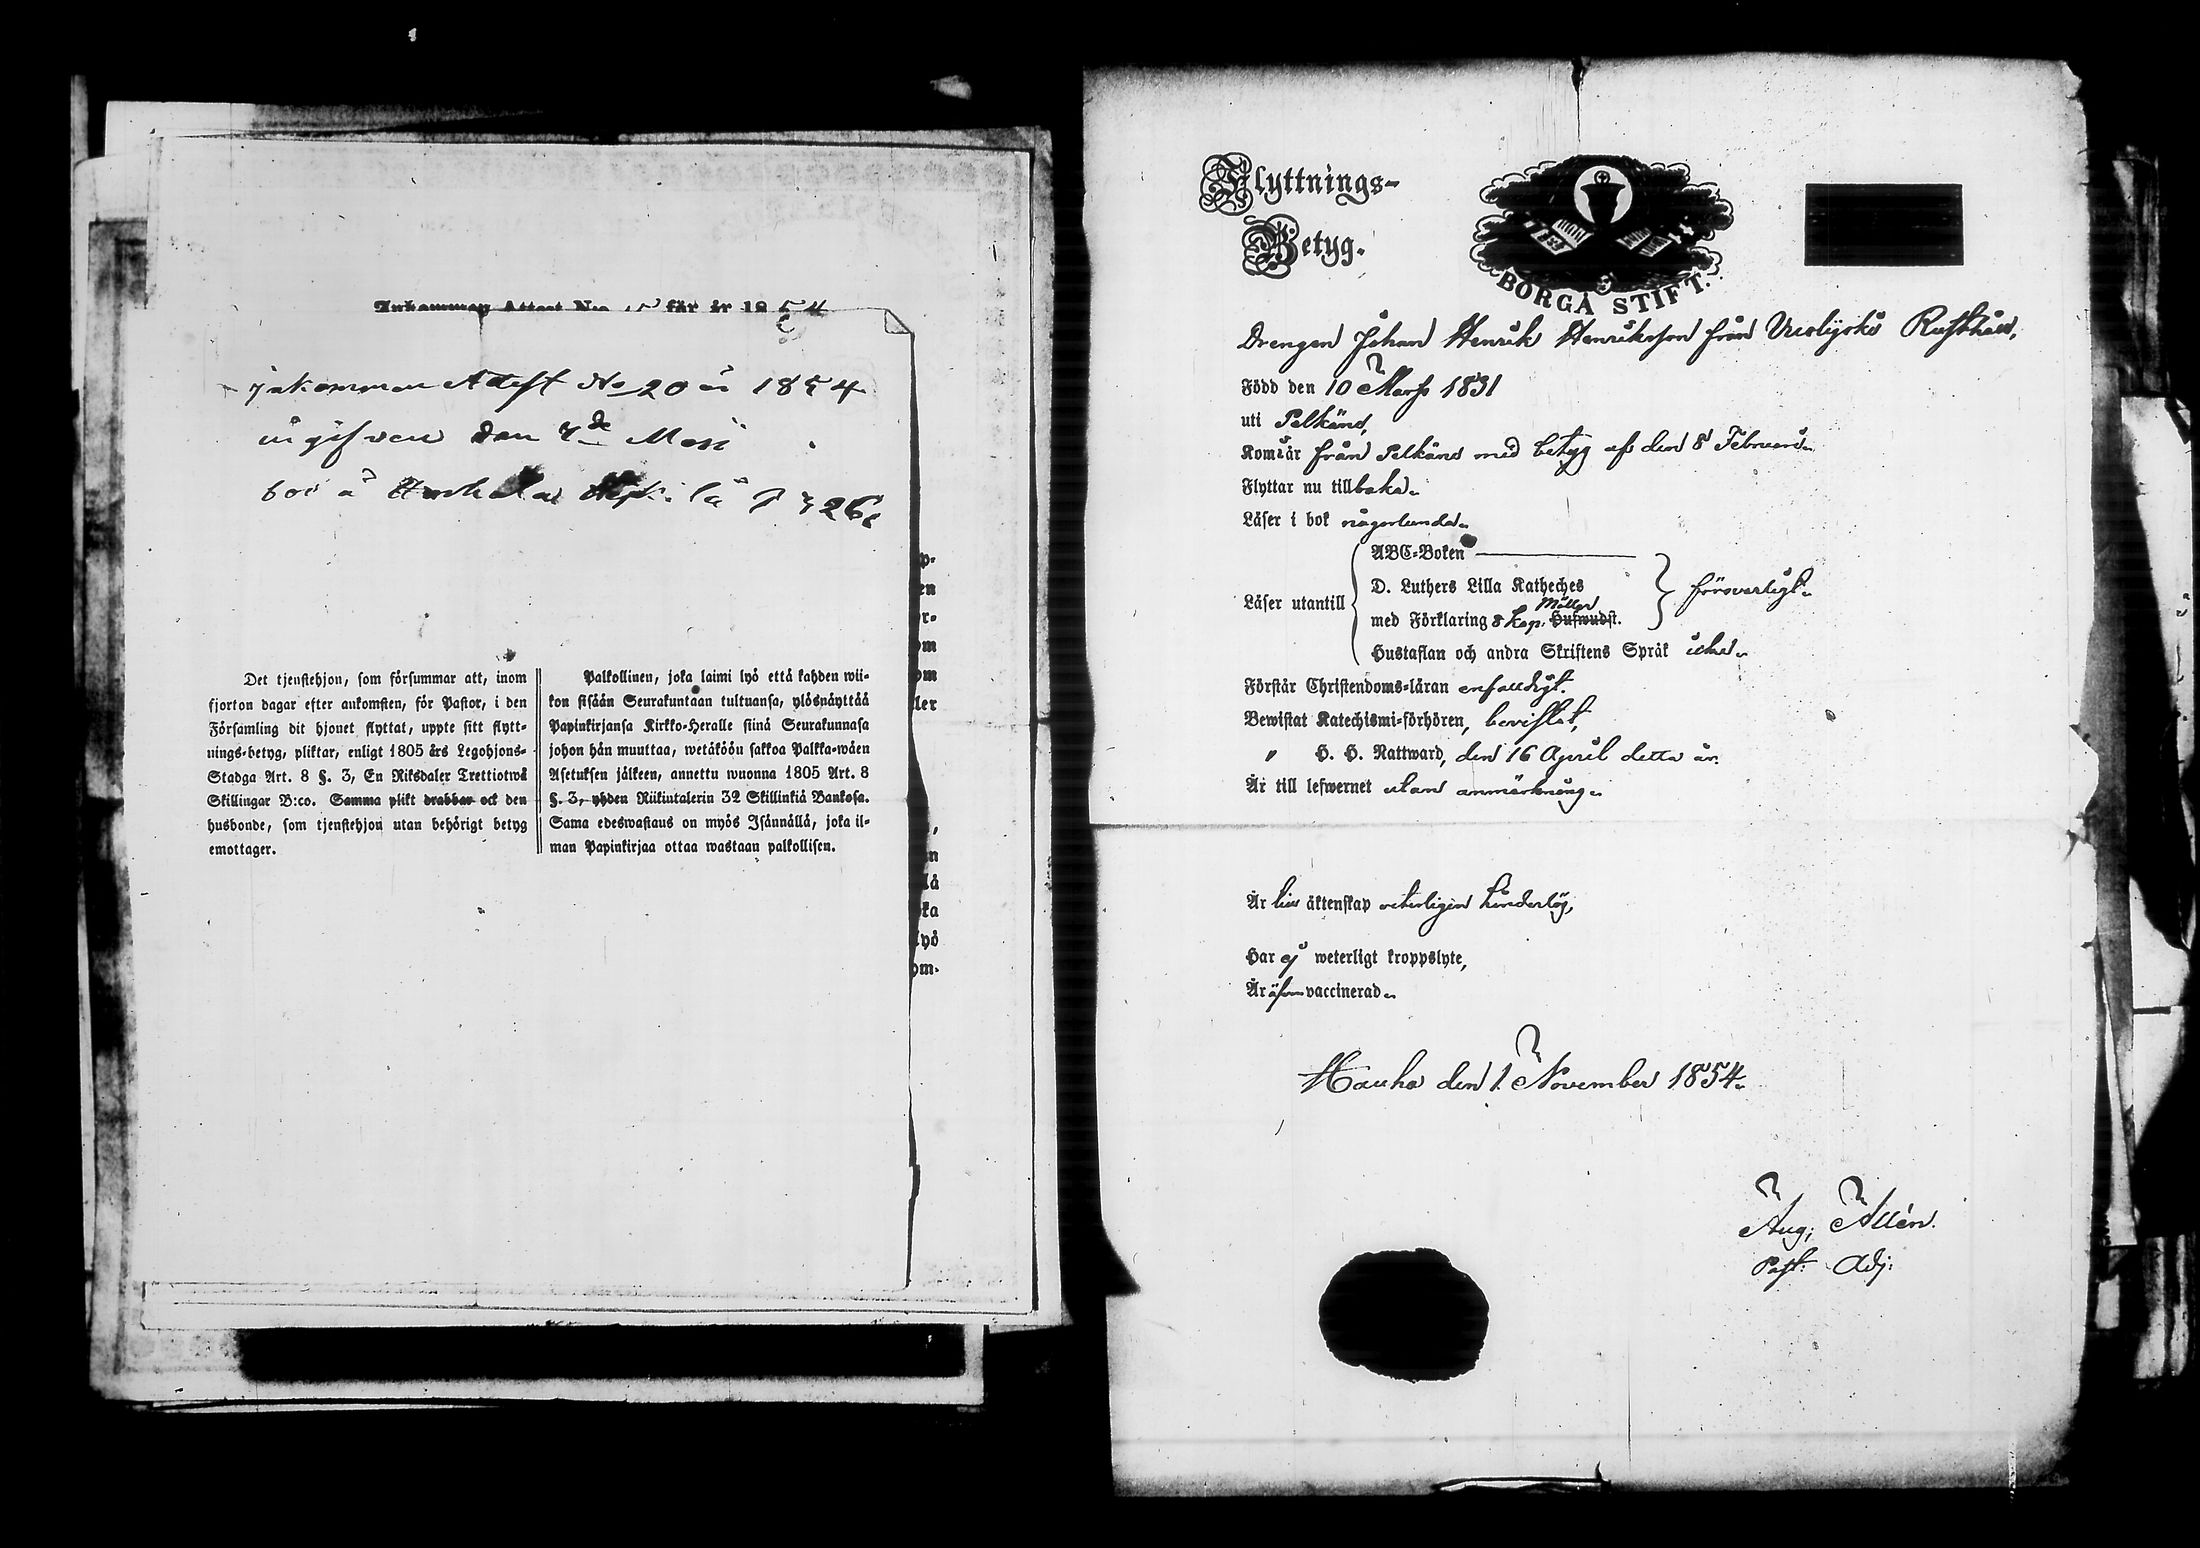 Inkommen Attest N:o för år 1854
Inkommen Attest No 20 år 1854
ingifven den 7de Maii
boi å p 326
Det tjenstehjon, som försummar att, inom
fjorton dagar efter ankomsten, för Pastor, i den
Församling dit hjonet flyttat, uppte sitt flytt-
nings-betyg, pliktar, enligt 1805 års Legohjons-
Stadga Art. 8 §. 3, En Riksdaler Trettiotwå
Skillingar B:co. Samma plikt drabbar ock den
husbonde, som tjenstehjon utan behörigt betyg
emottager.
Palkollinen, joka laimi lyö että kahden wii-
kon sisään Seurakuntaan tultuansa, ylösnäyttää
Papinkirjansa Kirkko-Heralle siinä Seurakunnasa
johon hän muuttaa, wetäköön sakkoa Palkka-wäen
Asetuksen jälkeen, annettu wuonna 1805 Art. 8
§. 3, yhden Riikintalerin 32 Skillinkiä Bankosa.
Sama edeswastaus on myös Isännällä, joka il-
man Papinkirjaa ottaa wastaan palkollisen.
p-
en
r-
om
om
ler
,
n
lä
ka
lyö
om-
Flyttnings-
Betyg.
BORGÅ STIFT.
Drengen Johan Henrik Henriksson från Rusthåll,
Född den 10 Mars 1831
uti Pelkäne,
Kom i år från Pelkäne med betyg af den 8 Februari.
Flyttar nu tillbaka.
Läser i bok någorlunda.
Läser utantill
ABC-Boken
D. Luthers Lilla Katheches
med Förklaring 8 kap. Möller Hufwudst.
försvarligt.
Hustaflan och andra Skriftens Språk icke.
Förstår Christendoms-läran enfalldigt.
Bewistat Katechismi-förhören, bevistat,
" H. H. Nattward, den 16 April detta år.
Är till lefwernet utan anmärkning.
Är till äktenskap veterligen hinderlös,
Har ej weterligt kroppslyte,
Är äfven vaccinerad.
Hauho den 1. November 1854.
Aug. Allén.
Past. Adj.